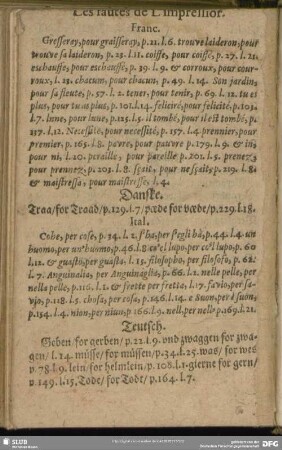 Les fautes de L'impression.
Franc.
Gresseray, pour graisseray, p.21.l.6. trouve laideron, pour
trouve sa laideron, p.25.l.11. coisse, pour coissé, p.27.l.21.
eschausse, pour eschaussé, p.39.l.9. & corroux, pour cour-
roux, l.23. chacum, pour chacun, p.49.l.14. Son jardin,
pour sa fleute, p.57.l.2. tener, pour tenir, p.69.l.12. tu es
plus, pour tu as plus, p.101.l.14. feliciré, pour felicité, p.103.
l.7. lnne, pour lune, p.125.l.5. il tombé, pour il est tombé, p.
137.l.12. Necessité, pour necessité, p.157.l.4. prennier, pour
premier, p.165.l.8. pavre, pour pauvre p.179.l.9. &
pour ni, l.20. peraille, pour pareille p.201.l.5. prenez,
pour prenorz, p.203.l.8. sçait, pour ne sçait, p.229.l.8.
& maistressa, pour maistresse, l.4.
Danske.
Traa / for Traad / p.129.l.7 / pæde for væde / p.229.l.18.
Ital.
Cohe, per cose, p.34.l.2. sha, per s'egli hà, p.44.l.4. un
huomo, per un'huomo, p.46.l.8. co'el lupo, per co'l lupo, p.60
l.12. & guasto, per guasta, l.15. filosopho, per filosofo, p.62.
l.7. Anguinalia, per Anguinaglia, p.66.l.2. nelle pelle, per
nella pelle, p.116.l.2. & frotte per fretta, l.17. savio, per sa-
vjo, p.128.l.5. chosa, per cosa, p.146.l.14. e suon, per à suon,
p.154.l.4. nion, per niun, p.166.l.9. nell, per nello p.169.l.21.
Teutsch.
Geben / for gerben / p.22.l.9. und zwaggen for zwa-
gen / l.14. müsse / for müssen / p.34.l.25. was / for wes
p.78.l.9. lein / for helmlein / p.108.l.1. gierne for gern /
p.149.l.15. Tode / for Todt / p.164.l.7.
SLUB
DFG